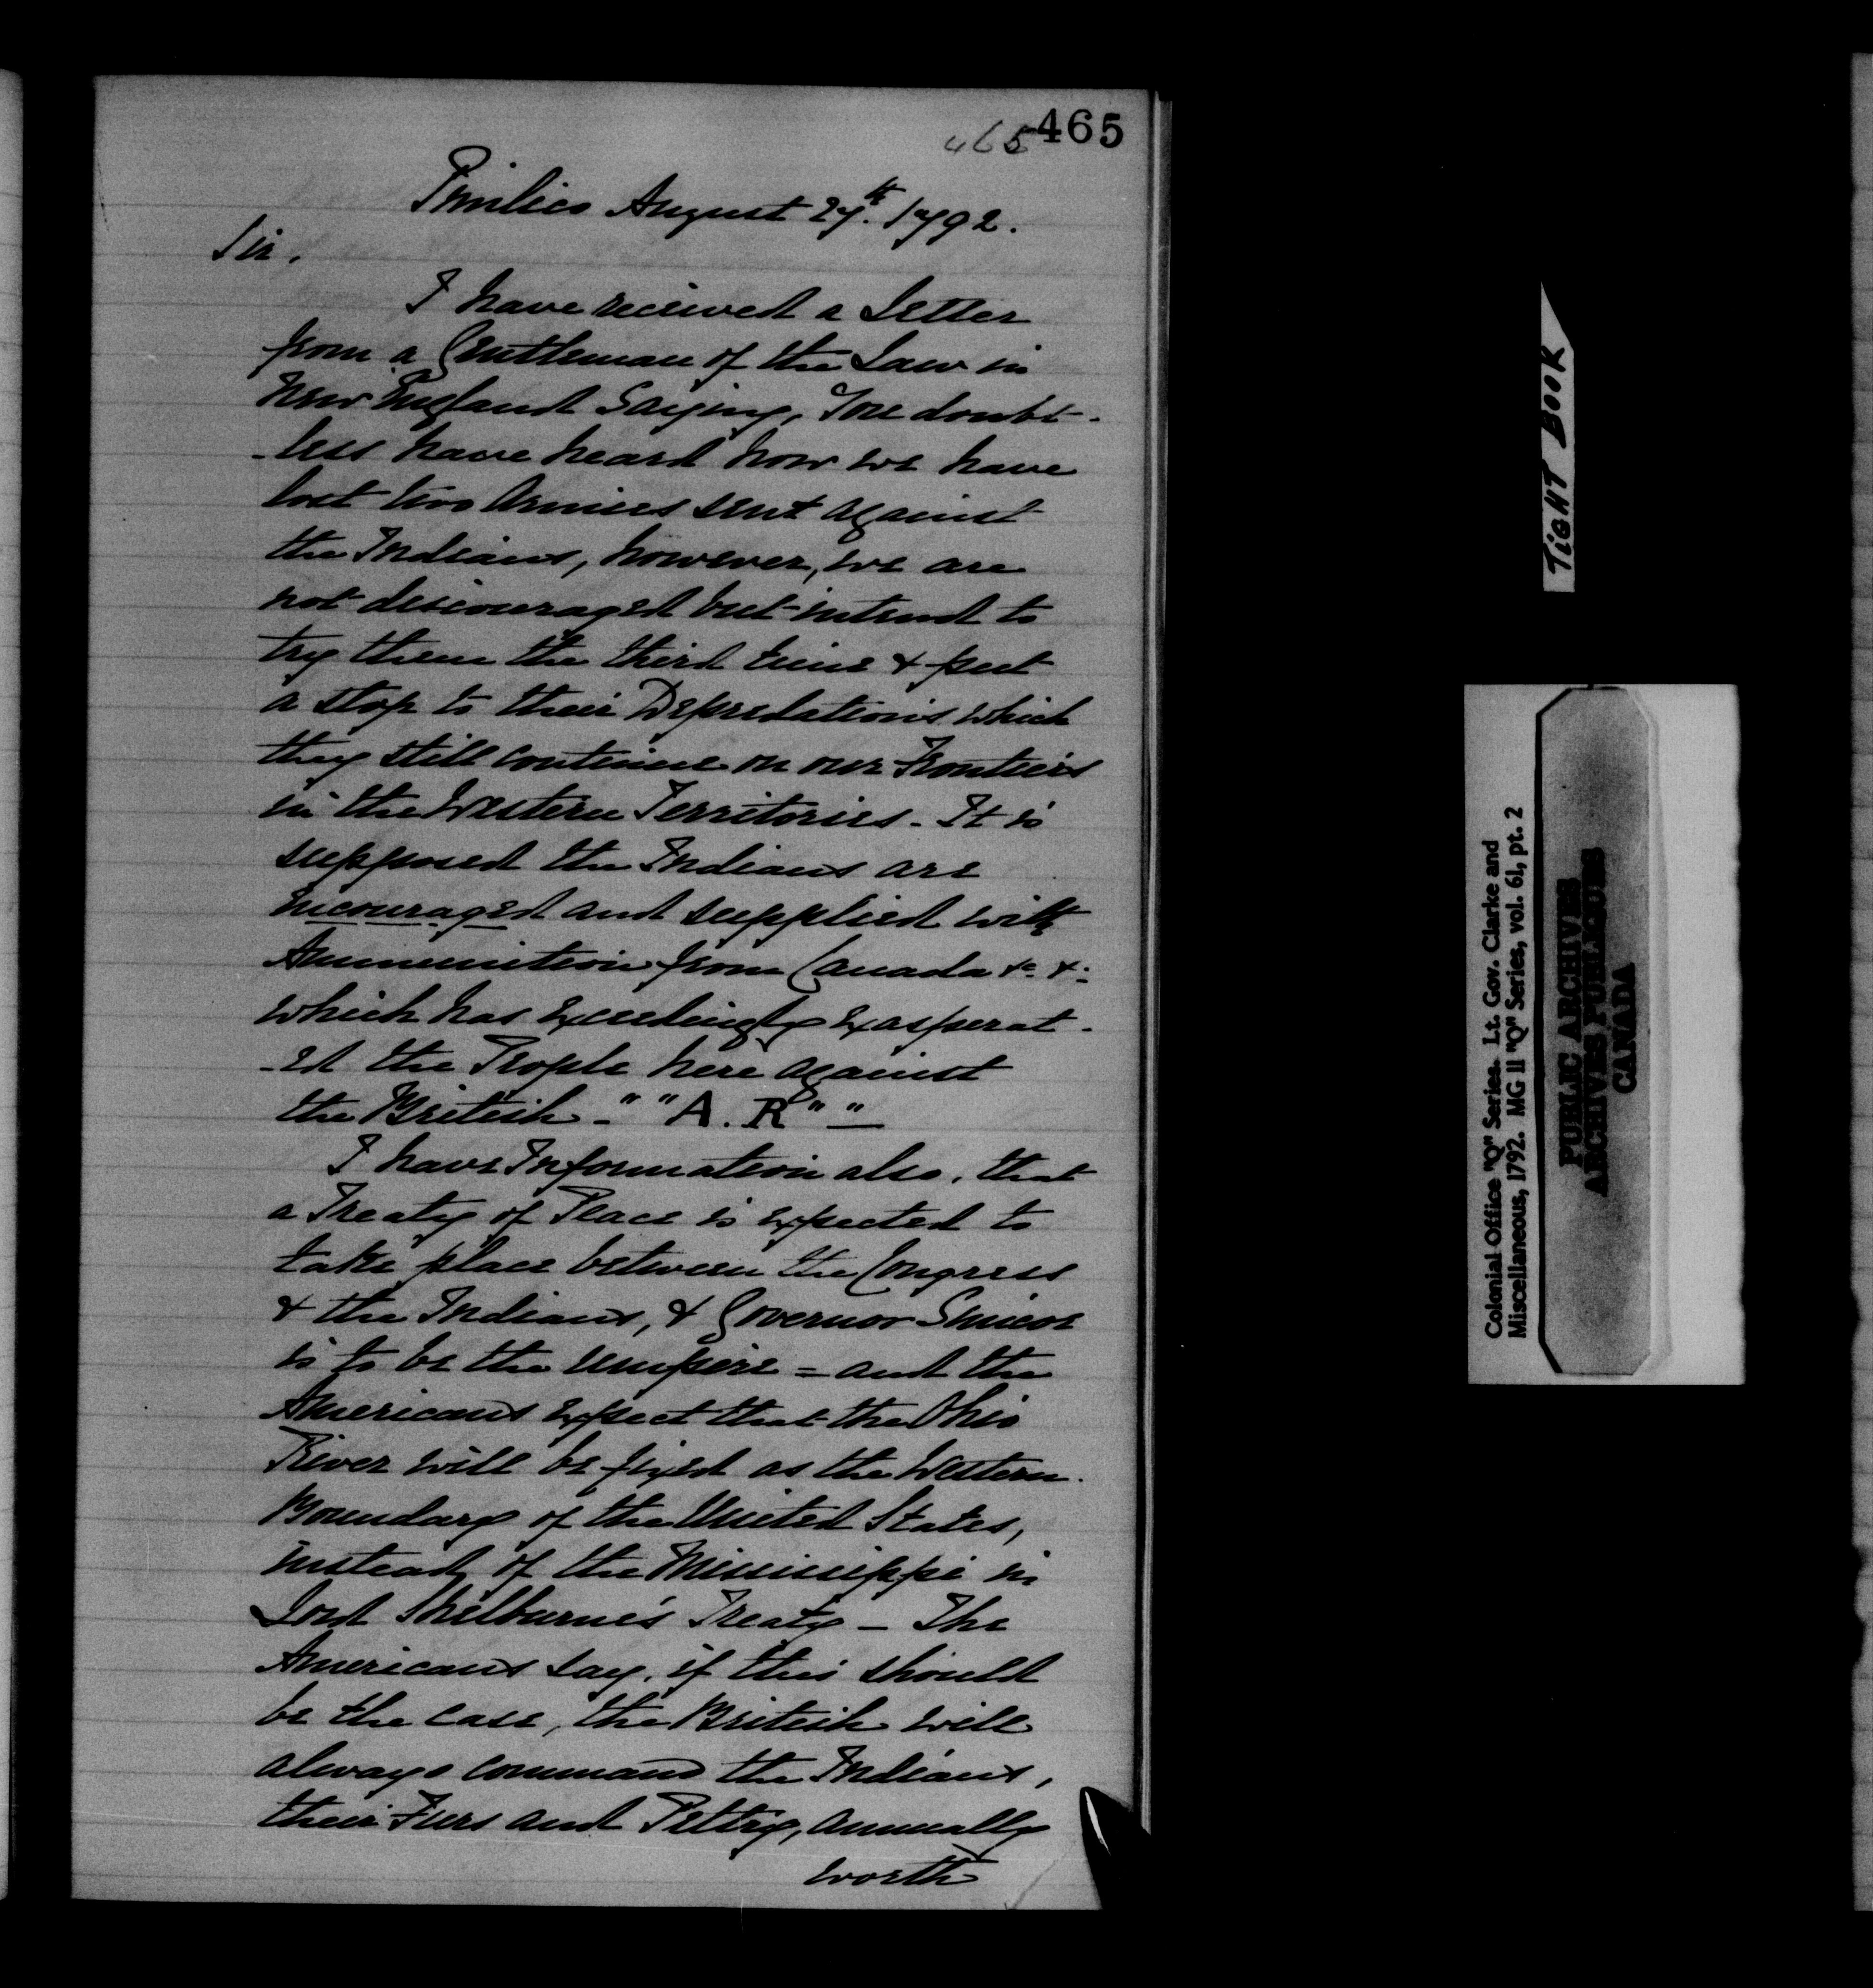 465 465
Pimlico August 27th. 1792.
Sir.
I have received a Letter
from a Gentleman of the Law in
New England Saying, You doubt-
-less have heard how we have
lost two Armies sent against
the Indians, however, we are
not discouraged but intend to
try them the third time & put
a stop to their Depredations which
they still continue on our Frontiers
in the Western Territories. It is
supposed the Indians are
encouraged and supplied with
Ammunition from Canada &c. &c.
which has exceedingly exasperat-
-ed the People here against
the British - " " A. R " " —
I have Information also, that
a Treaty of Peace is expected to
take place between the Congress
& the Indians, & Governor Simcoe
is to be the umpire = and the
Americans expect that the Ohio
River will be fixed as the Western
Boundary of the United States,
instead of the Mississippi in
Lord Shelburne's Treaty — The
Americans say, if this should
be the case, the British will
always command the Indians,
their Furs and Peltry, annually
worth
TIGHT BOOK
Colonial Office "Q" Series. Lt. Gov. Clarke and
Miscellaneous, 1792. MG 11 "Q" Series, vol. 61, pt. 2
PUBLIC ARCHIVES
ARCHIVES PUBLIQUES
CANADA